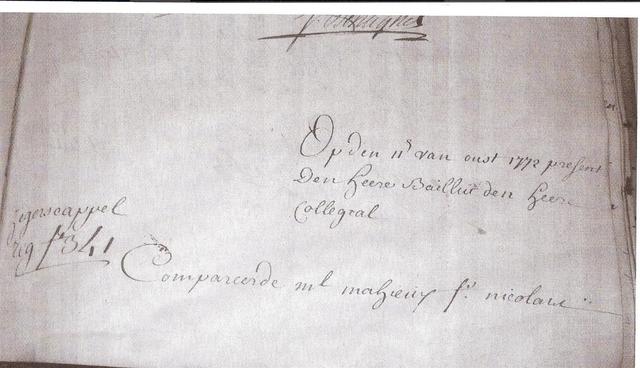 Opden 11ᵉ van oust 1772 present
den heere Bailliu den heere
Collegral
Zegerscappel
reg f° 341
Comparerde mˡ mahieux fˢ nicolaus